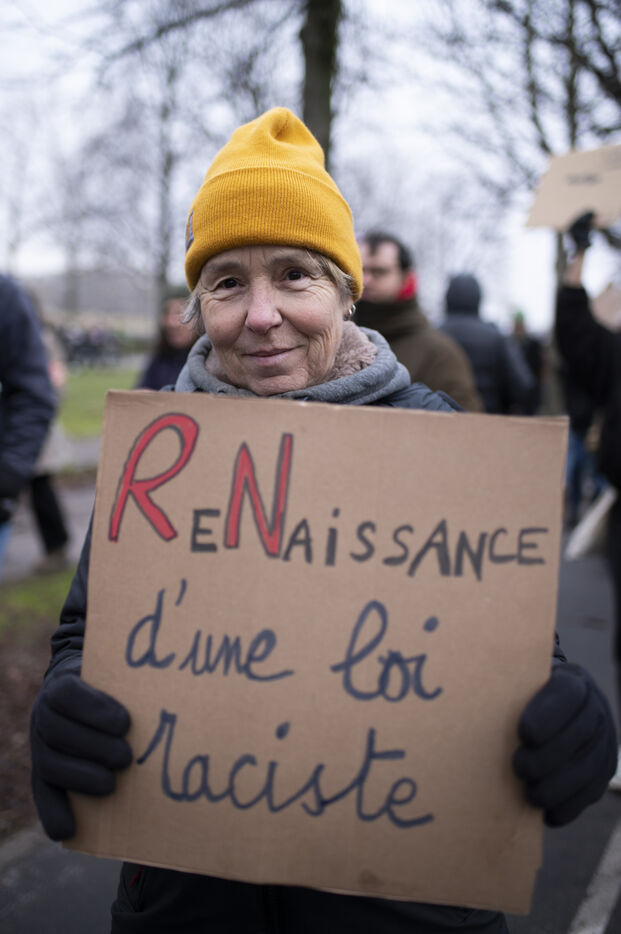 ReNaissance
d'une loi
raciste